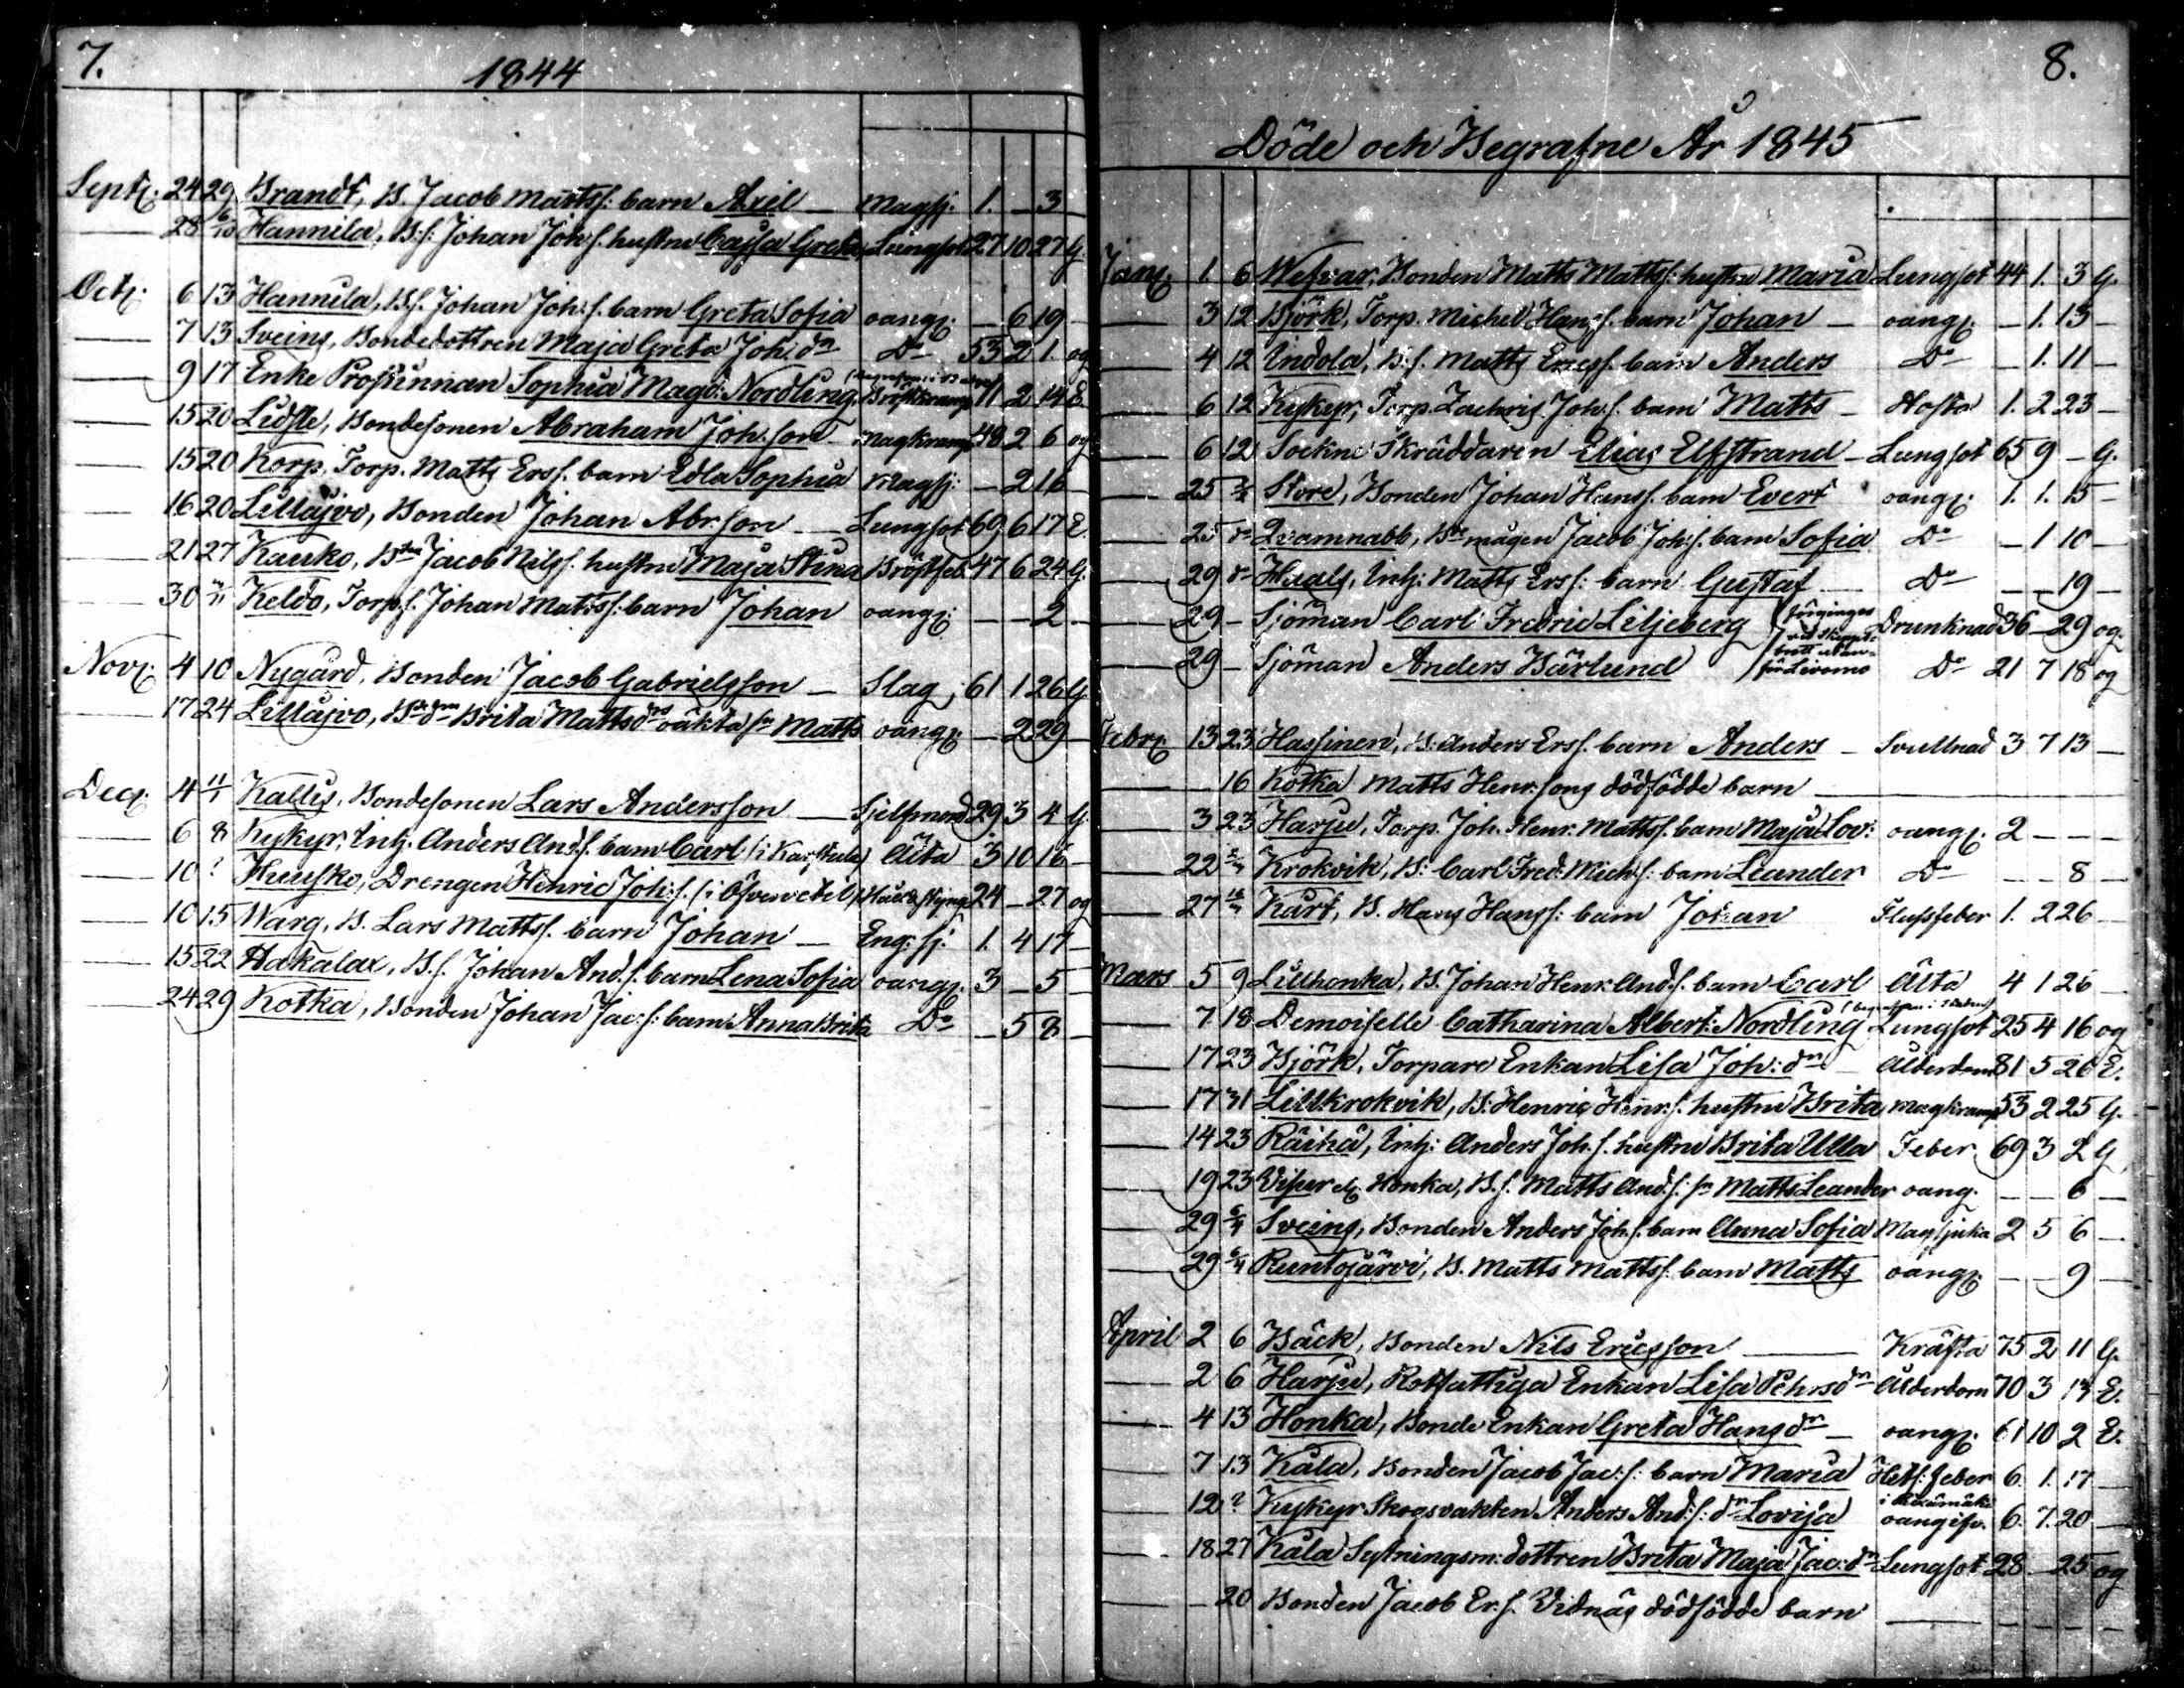 7.
1844
Septr. 24 29 Brandt, B. Jacob Mattsf: barn Axel — Magsj. 1. — 3
— 28 6/10 Hannila, B:f: Johan Joh:f: hustru Cajsa Greta, Lungsot 27 10 27 G.
Octr. 6 13 Hannula, Bf: Johan Joh:f. barn Greta Sofia oangf: — 6 19 —
— 7 13 Sveins, Bondedottren Maja Greta Joh: dr Do 53 2 1. og
— 9 17 Enke Prostinnan Sophia Magd: Nordling, Bröstkramp 71 2 14 E.
— 15 20 Lidsle, Bondesonen Abraham Joh:son — Magkramp 48 2 6 og
— 15 20 Korp, Torp. Matts Ersf. barn Edla Sophia Magsj: — 2 16
— 16 20 Lillåjvo, Bonden Johan Abr.son — Lungsot 69 6 17 E.
— 21 27 Kauko, Bden Jacob Nilsf. hustru Maja Stina Bröstfeb. 47 6 24 G.
— 30 Keldo, Torp.f. Johan Mattsf: barn Johan oangf: — — 2 —
Novr. 4 10 Nygård, Bonden Jacob Gabrielsson — Slag 61 1 26 G
— 17 24 Lillåjvo, Bdedn Brita Mattsdrs oäkta sn Matts oangf: — 2 29 —
Decr. 4 11/1 Kallis, Bondesonen Lars Andersson — Sjelfmord 29 3 4 G.
— 6 8 Kykyr, Inh. Anders Andf. barn Carl (i Karstula) Älta 3 10 16 —
— 10 ? Huusko, Drengen Henric Joh:f. (i Öfvervetil) Håll & styng 24 — 27 og
— 10 15 Warg, B. Lars Mattsf. barn Johan — Eng: sj: 1. 4 17 —
— 15 22 Hakalax, B.f. Johan And.f. barn Lena Sofia oangf. 3 — 5 —
— 24 29 Kotka, Bonden Johan Jac:f: barn Anna Brita Do — 5 8 —
8.
Döde och Begrafne År 1845
Janr. 1. 6 Wefvar, Bonden Matts Mattsf: hustru Maria Lungsot 44 1. 3 G.
— 3 12 Björk, Torp. Michel Hansf. barn Johan — oangf. — 1. 13 —
— 4 12 Indola, B.f. Matts Ericsf. barn Anders Do — 1. 11 —
— 6 12 Kykyr, Torp. Zachris Joh:f. barn Matts — Hosta 1. 2 23 —
— 6 12 Sockne Skräddaren Elias Elfstrand — Lungsot 65 9 — G.
— 25 2/2 Store, Bonden Johan Hansf. barn Evert oangf. 1. 1. 15 —
— 25 do Qvamnabb, Bdemågen Jacob Joh:f. barn Sofia Do — 1 10 —
— 29 do Huals, Inh: Matts Ersf: barn Gustaf — Do — — 19 —
— 29 — Sjöman Carl Fredric Liljeberg (förginges Drunknad 36 — 29 og.
vid Skepps-
brott utan-
— 29 — Sjöman Anders Bärlund för Livorno Do 21 7 18 og
Febr. 13 23 Hassinen, B. Anders Ersf. barn Anders — Svullnad 3 7 13 —
16 Kotka Matts Henr:sons dödfödde barn —
— 3 23 Harju, Torp. Joh. Henr. Mattsf. barn Maja Lov: oangf. 2 — — —
— 22 2/3 Krokvik, B: Carl Fred: Mich:f: barn Leander Do — — 8 —
— 27 16/3 Kurt, B. Hans Hansf: barn Johan Flussfeber 1. 2 26 —
Mars 5 9 Lillhonka, B. Johan Henr: And.f. barn Carl Älta 4 1 26 —
— 7 18 Demoiselle Catharina Albert: Nordling (begrafven i Staden) Lungsot 25 4 16 og
— 17 23 Björk, Torpare Enkan Lisa Joh: dr — Ålderdom 81 5 26 E.
— 17 31 Lillkrokvik, B: Henric Henr:f. hustru Brita Magkramp 53 2 25 G.
— 14 23 Räihä, Inh: Anders Joh:f. hustru Brita Ulla Feber 69 3 2 G
— 19 23 Visur el. Honka, B.f. Matts And.f. sn Matts Leander oang. — — 6 —
— 29 6/4 Sveins, Bonden Anders Joh:f. barn Anna Sofia Magsjuka 2 5 6 —
— 29 6/4 Runtojärvi, B. Matts Mattsf. barn Matts oangf. — — 9 —
April 2 6 Bäck, Bonden Nils Ericsson — Kräfta 75 2 11 G.
— 2 6 Harju, Rotfattiga Enkan Lisa Pehrsdr Ålderdom 70 3 13 E.
— 4 13 Honka, Bonde Enkan Greta Hansdr — oangf. 61 10 2 E.
— 7 13 Kåla, Bonden Jacob Jac:f: barn Maria Hets: feber 6 1. 17 —
— 12 ? Kykyr Skogsvakten Anders And:f: dr Lovisa oangifv. 6. 7. 20 —
— 18 27 Kåla Sytningsm: dottren Brita Maja Jac: dr Lungsot 28 — 25 og
— 20 Bonden Jacob Er.f. Vidnäs dödfödde barn — — — —